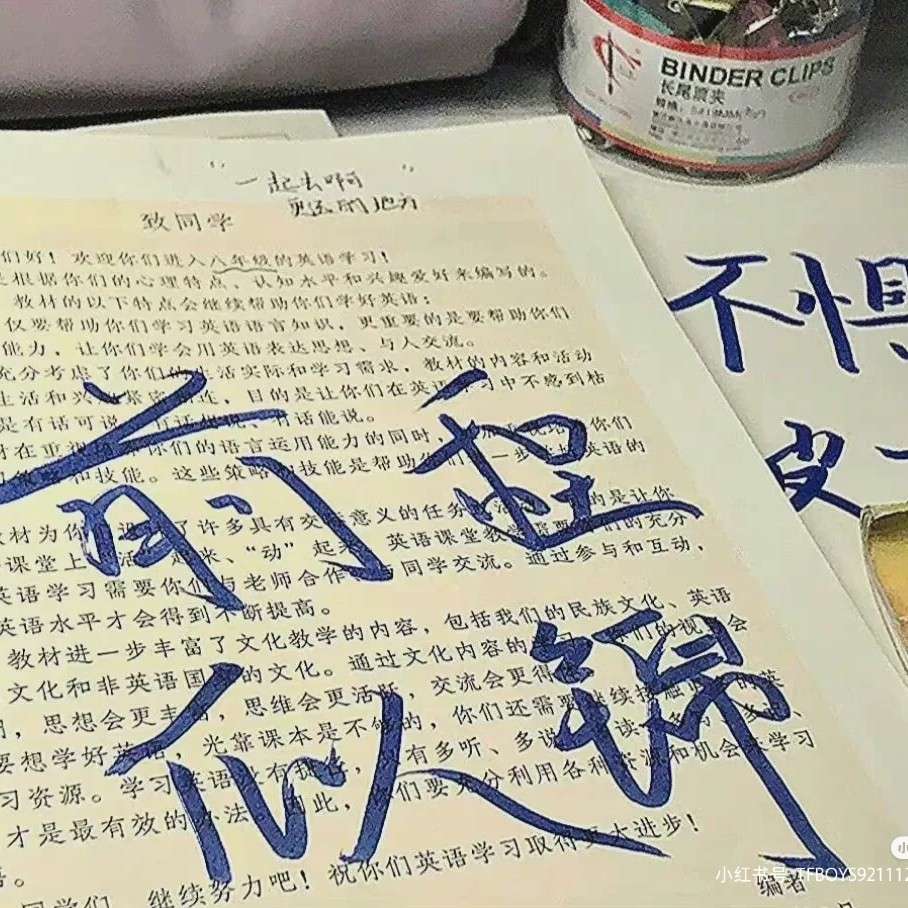 BINDER CLIPS
长尾票夹
"一起去啊
更远的地方"
致同学
们好！欢迎你们进入八年级的英语学习！
是根据你们的心理特点、认知水平和兴趣爱好来编写的。
教材的以下特点会继续帮助你们学好英语：
仅要帮助你们学习英语语言知识，更重要的是要帮助你们
能力，让你们学会用英语表达思想、与人交流。
充分考虑了你们的生活实际和学习需求，教材的内容和活动
生活和兴 连，目的是让你们在英语学习中不感到枯
是有话可说、有话想说、有话能说。
材在重视 你们的语言运用能力的同时，
和技能。这些策略和技能是帮助你们进一步 英语的
教材为你们设 了许多具有交际意义的任务 的是让你
课堂上“活”起来、“动”起来。英语课堂教学需要你们的充分
英语学习需要你们与老师合作、 同学交流。通过参与和互动，
英语水平才会得到不断提高。
教材进一步丰富了文化教学的内容，包括我们的民族文化、英语
文化和非英语国家的文化。通过文化内容的 你们的视野会
，思想会更丰富，思维会更活跃，交流会更得体。
要想学好英语，光靠课本是不够的，你们还需要继续接触 的英
习资源。学习英语没有捷径，只有多听、多说、多读、多写、多
才是最有效的办法。因此，你们要充分利用各种资源和机会来学习
语。
同学们，继续努力吧！祝你们英语学习取得更大进步！
编者
前程
似锦
不惧
小红书号：TFBOYS921112